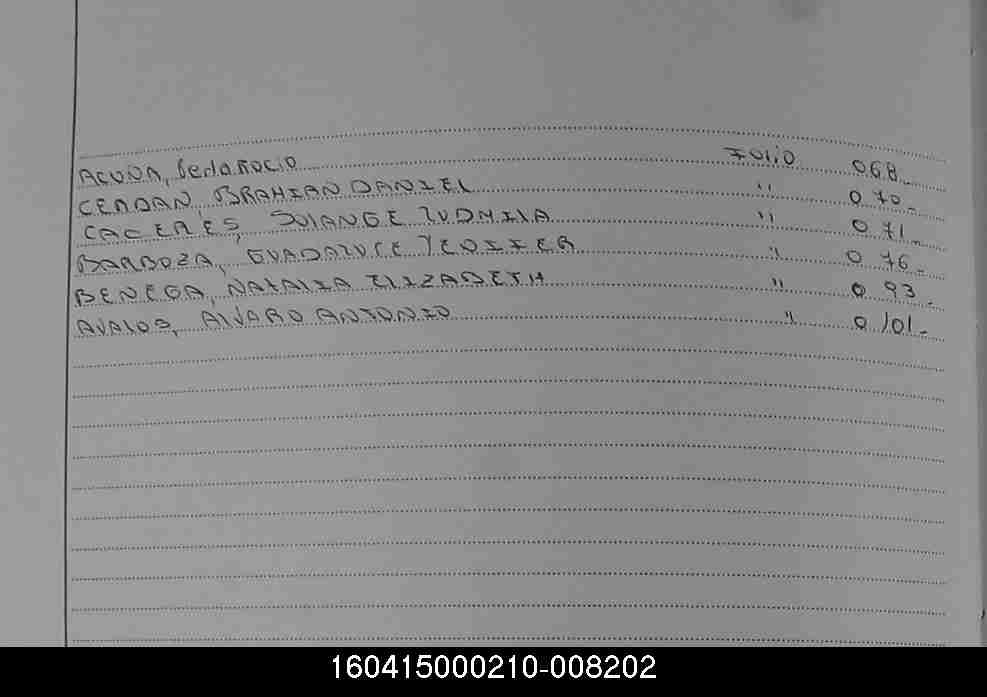 ACUÑA, Berta ROCIO Folio 068_
CERDAN BRAHIAN DANIEL " 0 70_
CACERES, SOLANGE LUDMILA " 0 71_
BARBOZA, GUADALUPE YENIFER " 0 76_
BENEGA, NATALIA ELIZABETH " 0 93_
AVALOS, ALVARO ANTONIO " 0 101_
160415000210-008202